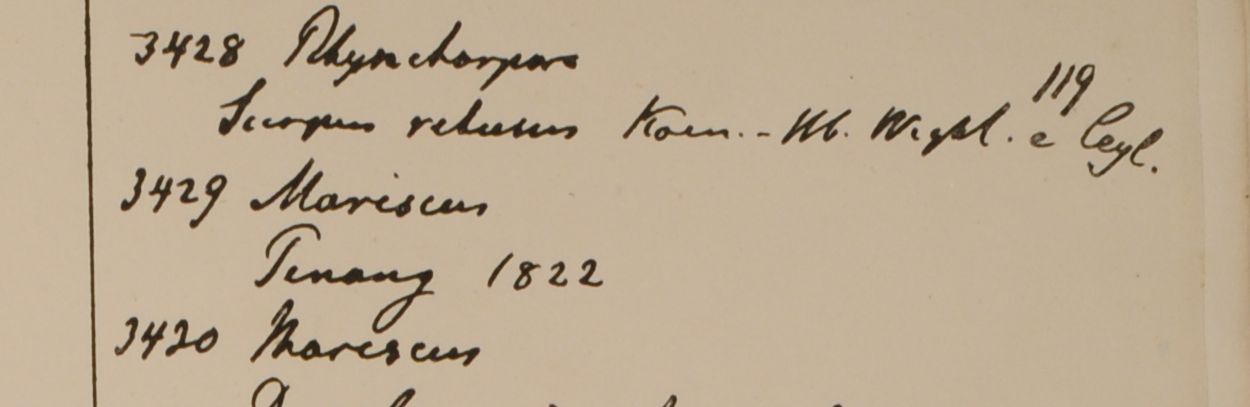 3428 Rhynchospora
119
Scirpus retusus Koen. - Hb. Wight. e Ceyl.
3429 Mariscus
Penang 1822
3430 Mariscus